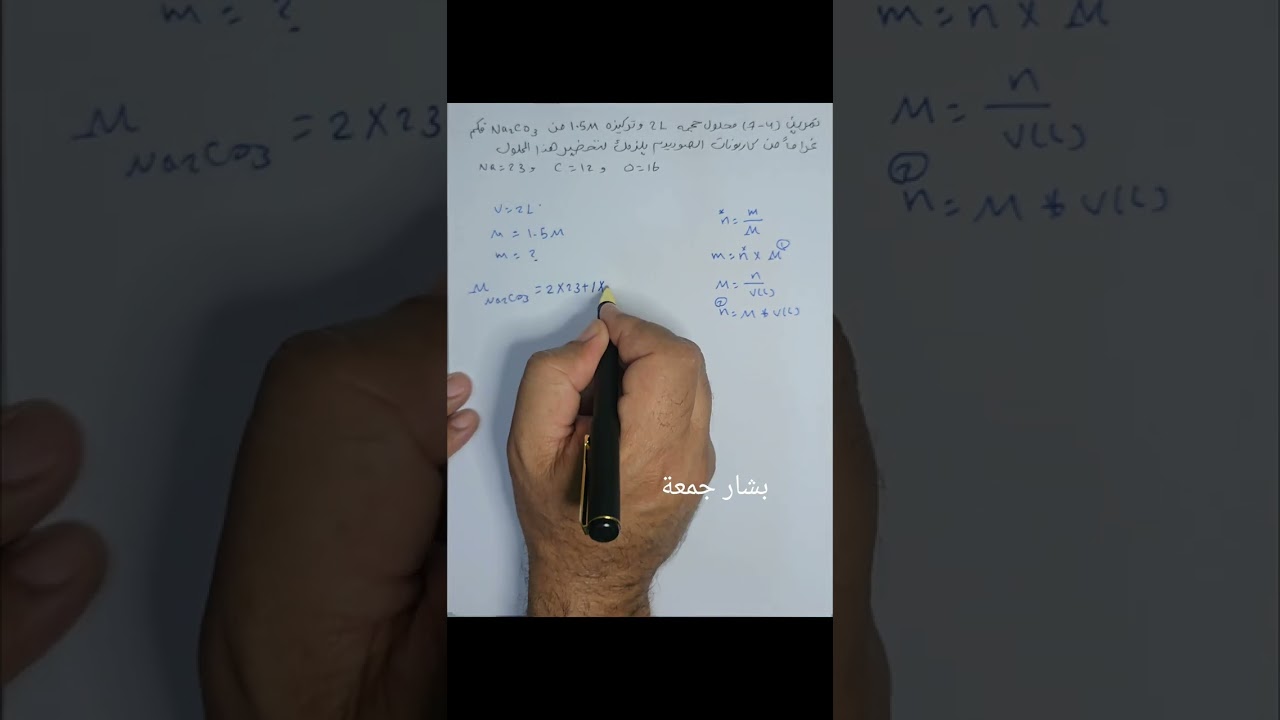 تمرين (4-7) محلول حجمه 2L وتركيزه 1.5M من Na2CO3 فكم
غراماً من كاربونات الصوديوم يلزمك لتحضير هذا المحلول
Na=23 , C=12 , O=16
V=2L
M=1.5M
m=?
M Na2CO3 = 2X23+1X
n = m/M
m=n x M ①
M = n/V(L)
② n = M * V(L)
بشار جمعة